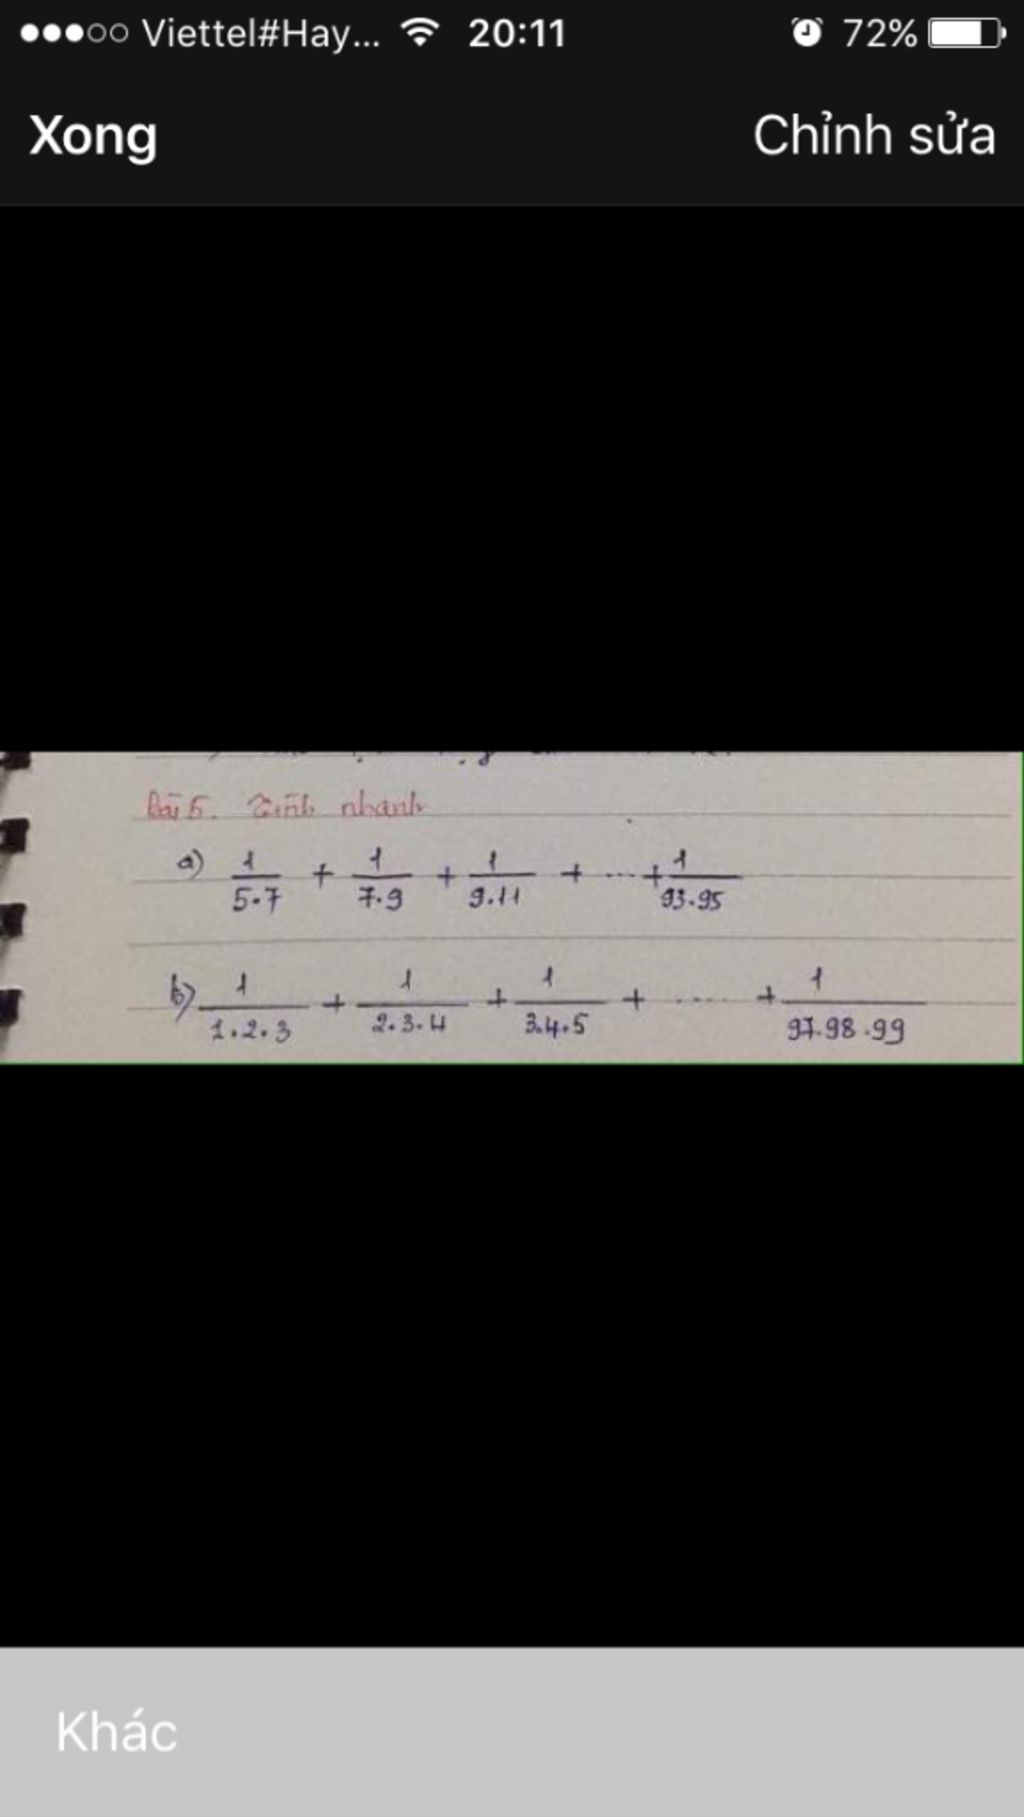 Viettel#Hay... 20:11 72%
Xong Chỉnh sửa
Bài 5. Tính nhanh
a) 1/5.7 + 1/7.9 + 1/9.11 + ... + 1/93.95
b) 1/1.2.3 + 1/2.3.4 + 1/3.4.5 + .... + 1/97.98.99
Khác